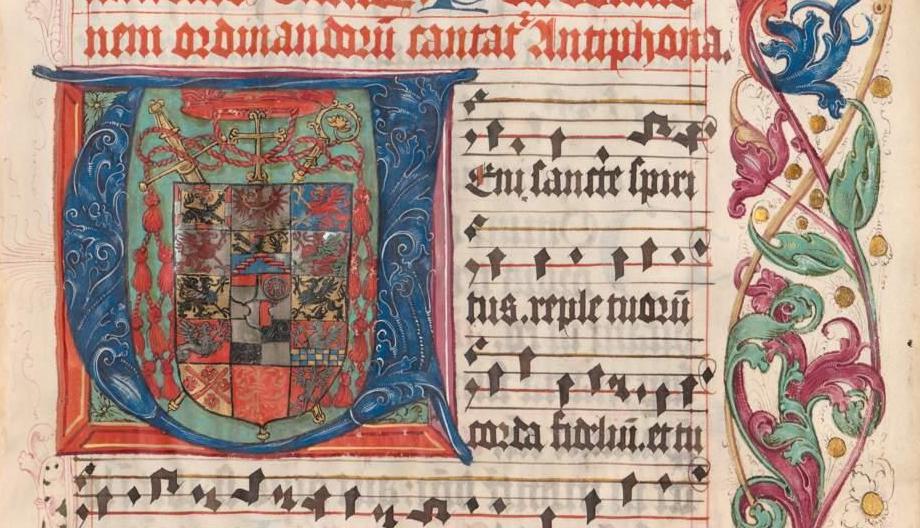 nem ordinandorū cantat Antiphona.
Veni sancte spiri
tus. reple tuorū
corda fideliū. et tu